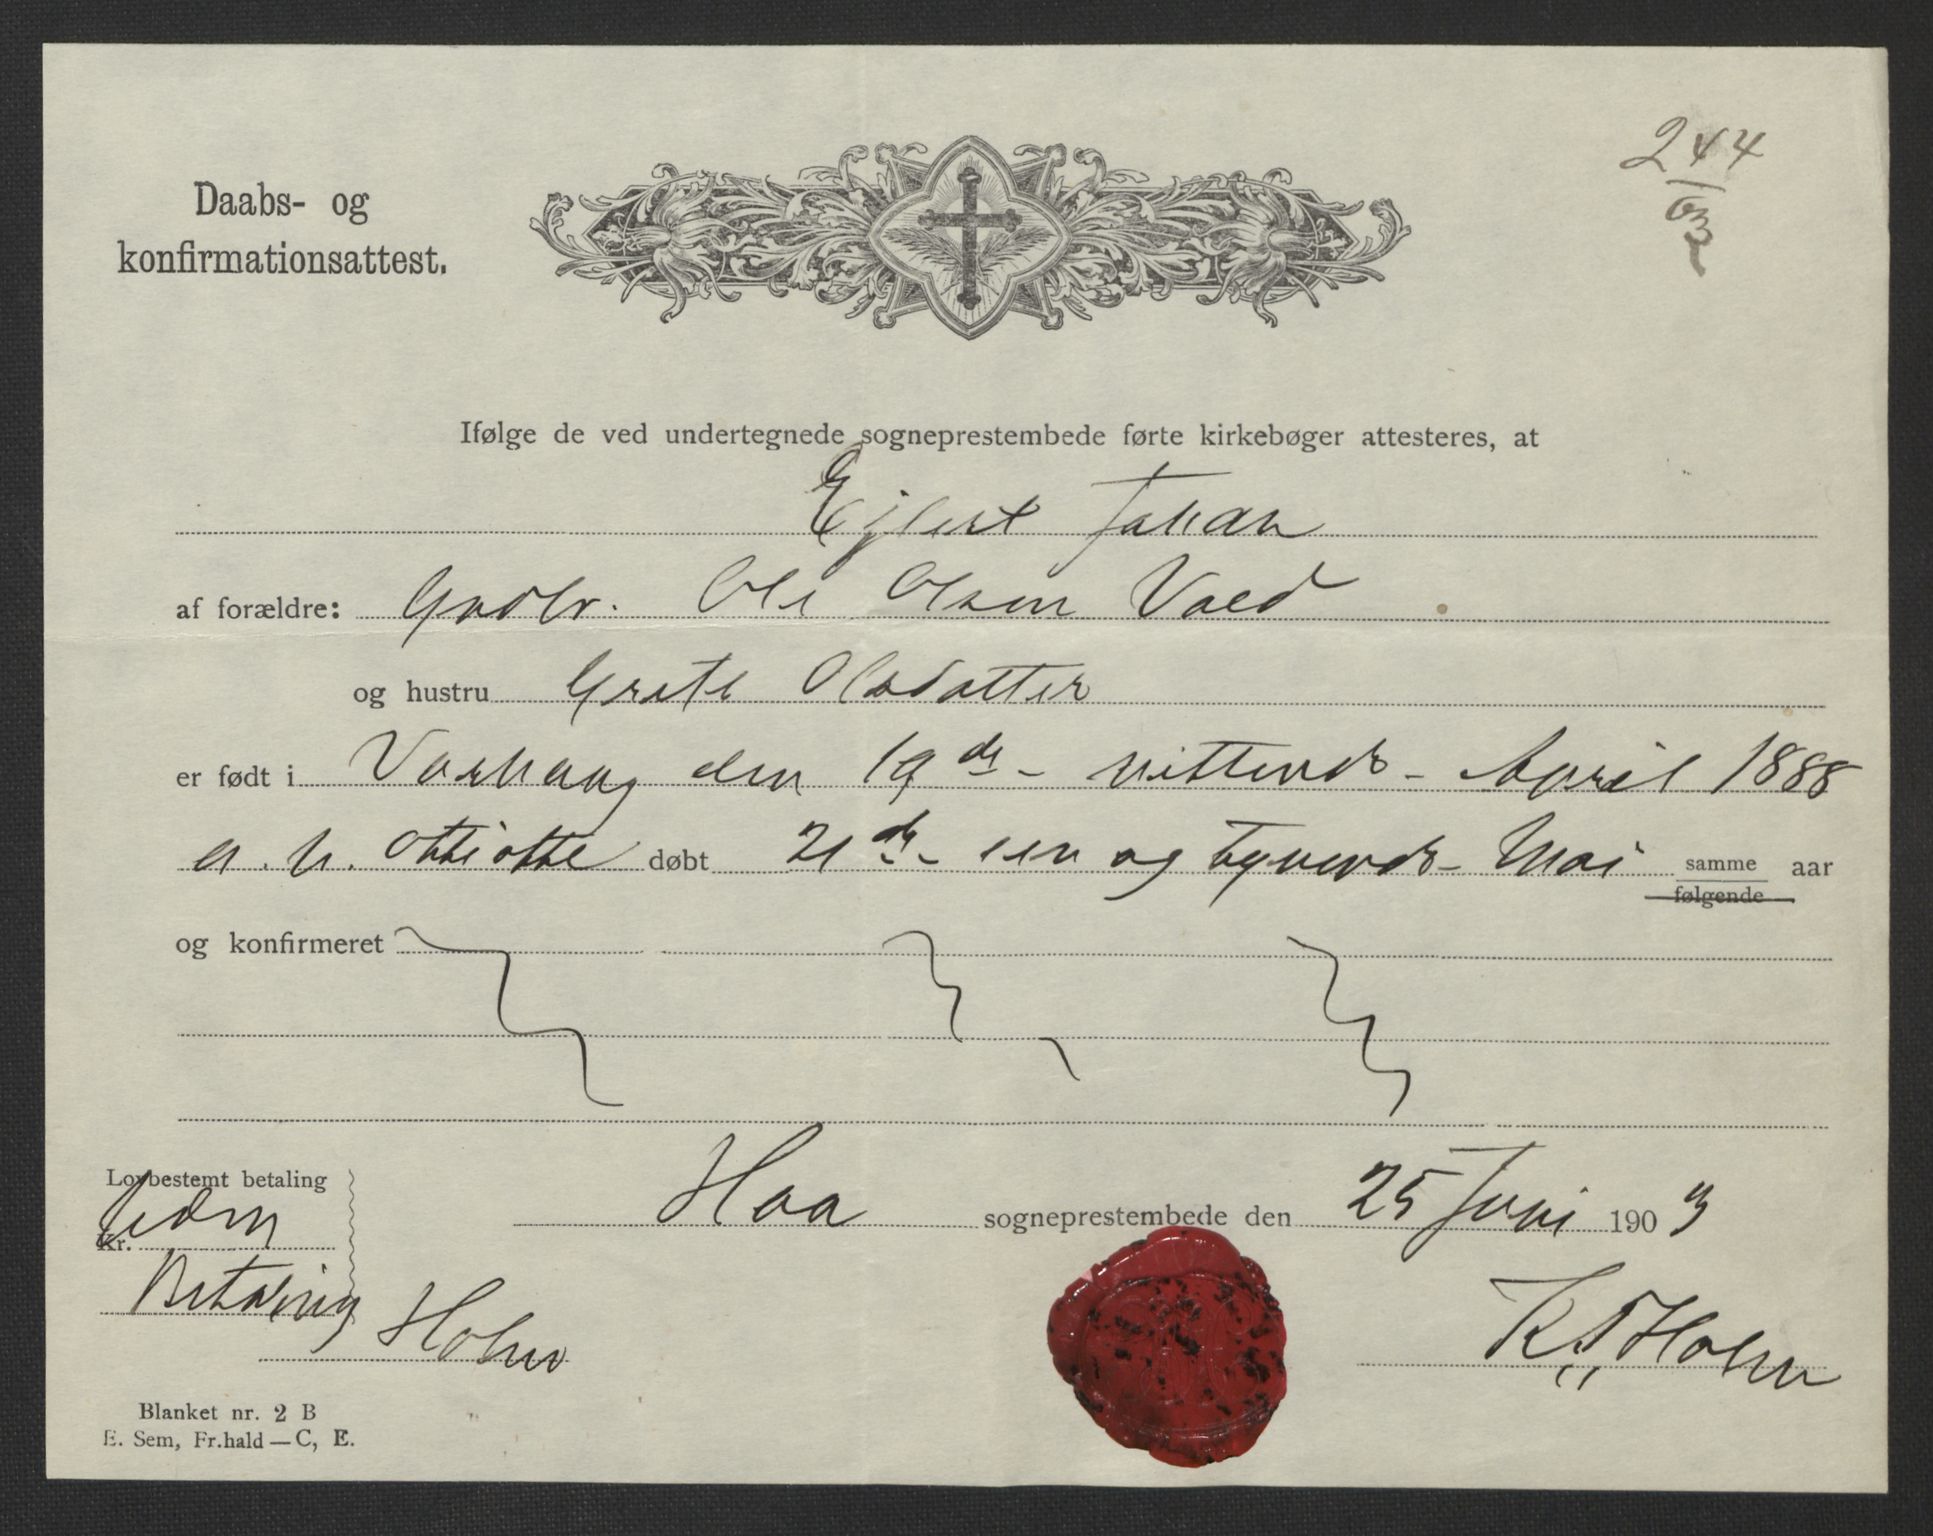 244
63
Daabs- og
konfirmationsattest.
Ifølge de ved undertegnede sogneprestembede førte kirkebøger attesteres, at
Ejlert Johan
af forældre: Grdbr. Ole Olsen Voed
og hustru Grete Olsdatter
er født i Varhaug den 19de - nittende - April 1888
a. h. otteiotte døbt 21de - een og tyvende - Mai samme aar
følgende
og konfirmeret
Lovbestemt betaling
Kr. Uden
Betaling
Holm
Haa sogneprestembede den 25 Juni 1903
K. Holm
Blanket nr. 2 B
E. Sem, Fr.hald — C, E.